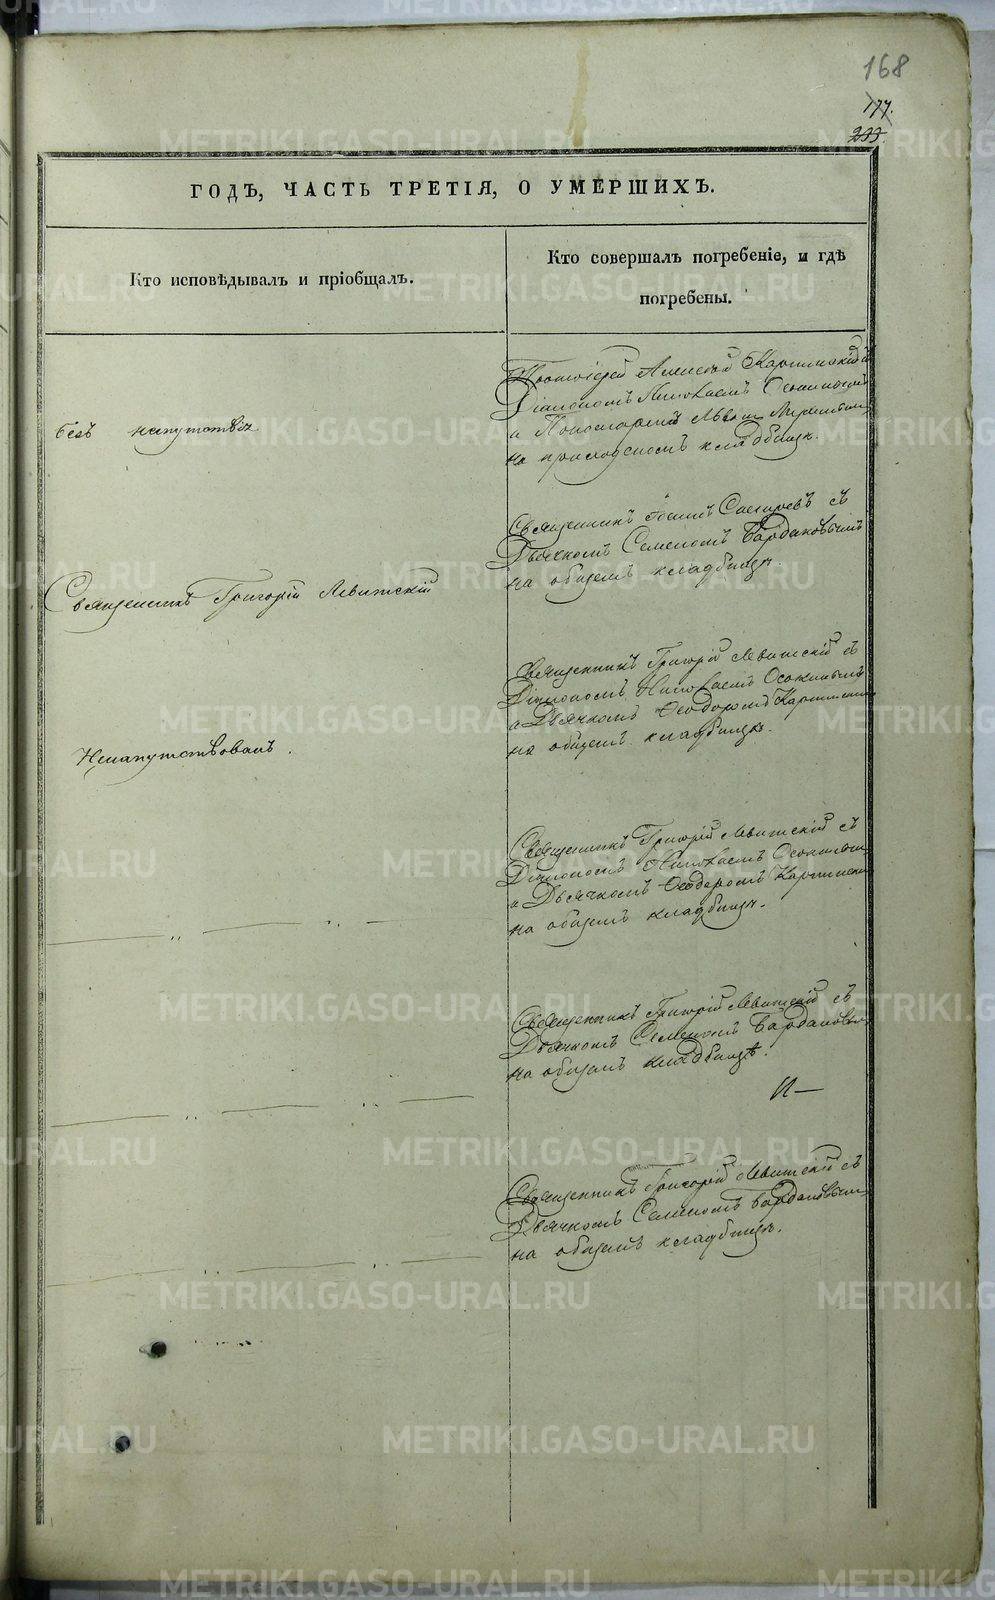 168
177.
233.
ГОДЪ, ЧАСТЬ ТРЕТІЯ, О УМЕРШИХЪ.
Кто исповѣдывалъ и пріобщалъ.
Кто совершалъ погребеніе, и гдѣ
погребены.
безъ напутствія
Протоіерей Алексѣй Карпинскій съ
Діакономъ Николаемъ Осокинымъ
и Пономаремъ
на приходскомъ кладбищѣ.
Священникъ Григорій Левитскій
Священникъ Іоаннъ съ
Дьячкомъ Семеномъ Бардаковымъ
на общемъ кладбищѣ.
Ненапутствованъ.
Священникъ Григорій Левитскій съ
Діакономъ Николаемъ Осокинымъ
и Дьячкомъ Ѳеодоромъ Карпинскимъ
на общемъ кладбищѣ.
— „ — „ —
Священникъ Григорій Левитскій съ
Діакономъ Николаемъ Осокинымъ
и Дьячкомъ Ѳеодоромъ Карпинскимъ
на общемъ кладбищѣ.
— „ — „ —
Священникъ Григорій Левитскій съ
Дьячкомъ Семеномъ Бардаковымъ
на общемъ кладбищѣ.
— „ — „ —
Священникъ Григорій Левитскій съ
Дьячкомъ Семеномъ Бардаковымъ
на общемъ кладбищѣ.
METRIKI.GASO-URAL.RU